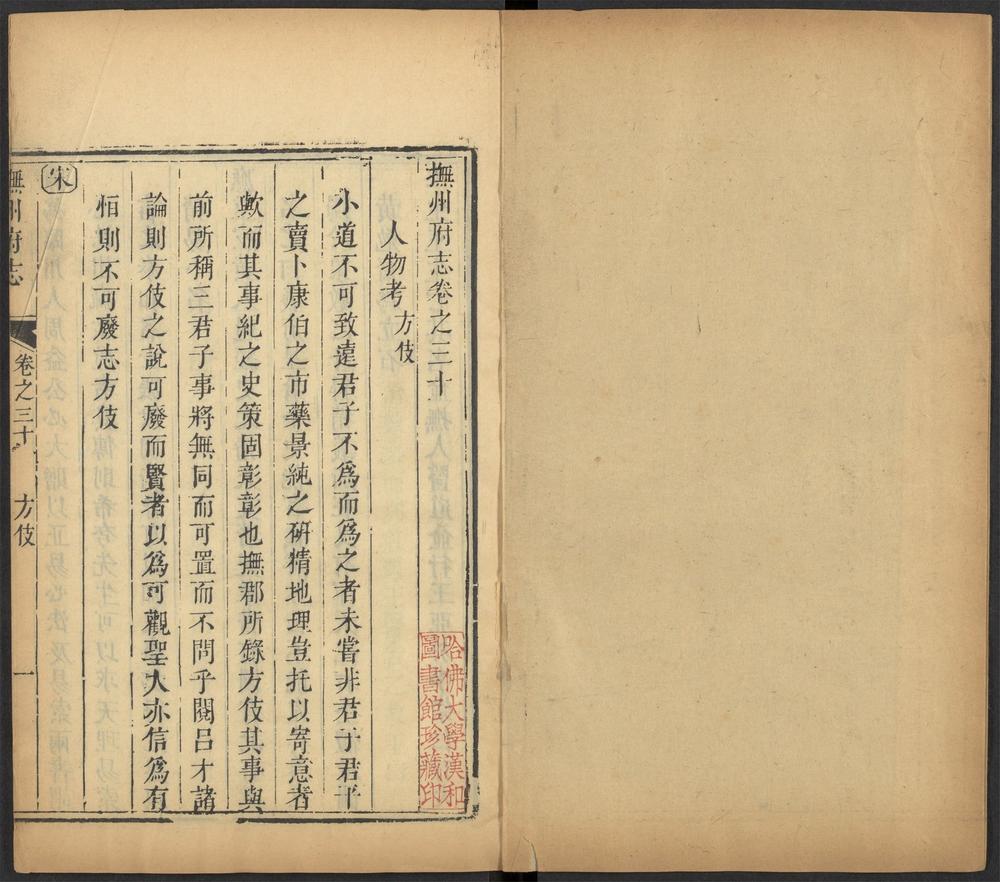 撫州府志卷之三十
人物考 方伎
小道不可致遠君子不爲而爲之者未嘗非君子君平
之賣卜康伯之市藥景純之硏精地理豈托以寄意者
歟而其事紀之史策固彰彰也撫郡所錄方伎其事與
前所稱三君子事將無同而可置而不問乎閱呂才諸
論則方伎之說可廢而賢者以爲可觀聖人亦信爲有
恒則不可廢志方伎
宋
撫州府志 卷之三十 方伎 一
哈佛大學漢和
圖書館珍藏印